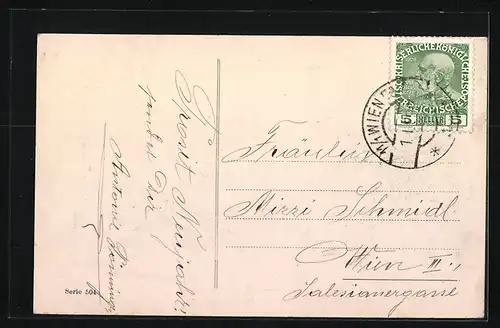 Prosit Neujahr!
sendet Dir
Antonie
Serie 504
KAISERLICHE KÖNIGLICHE ÖSTERREICHISCHE
5 HELLER 5
WIEN
Fräulein
Mizzi Schmidl
Wien III.,
Salesianergasse